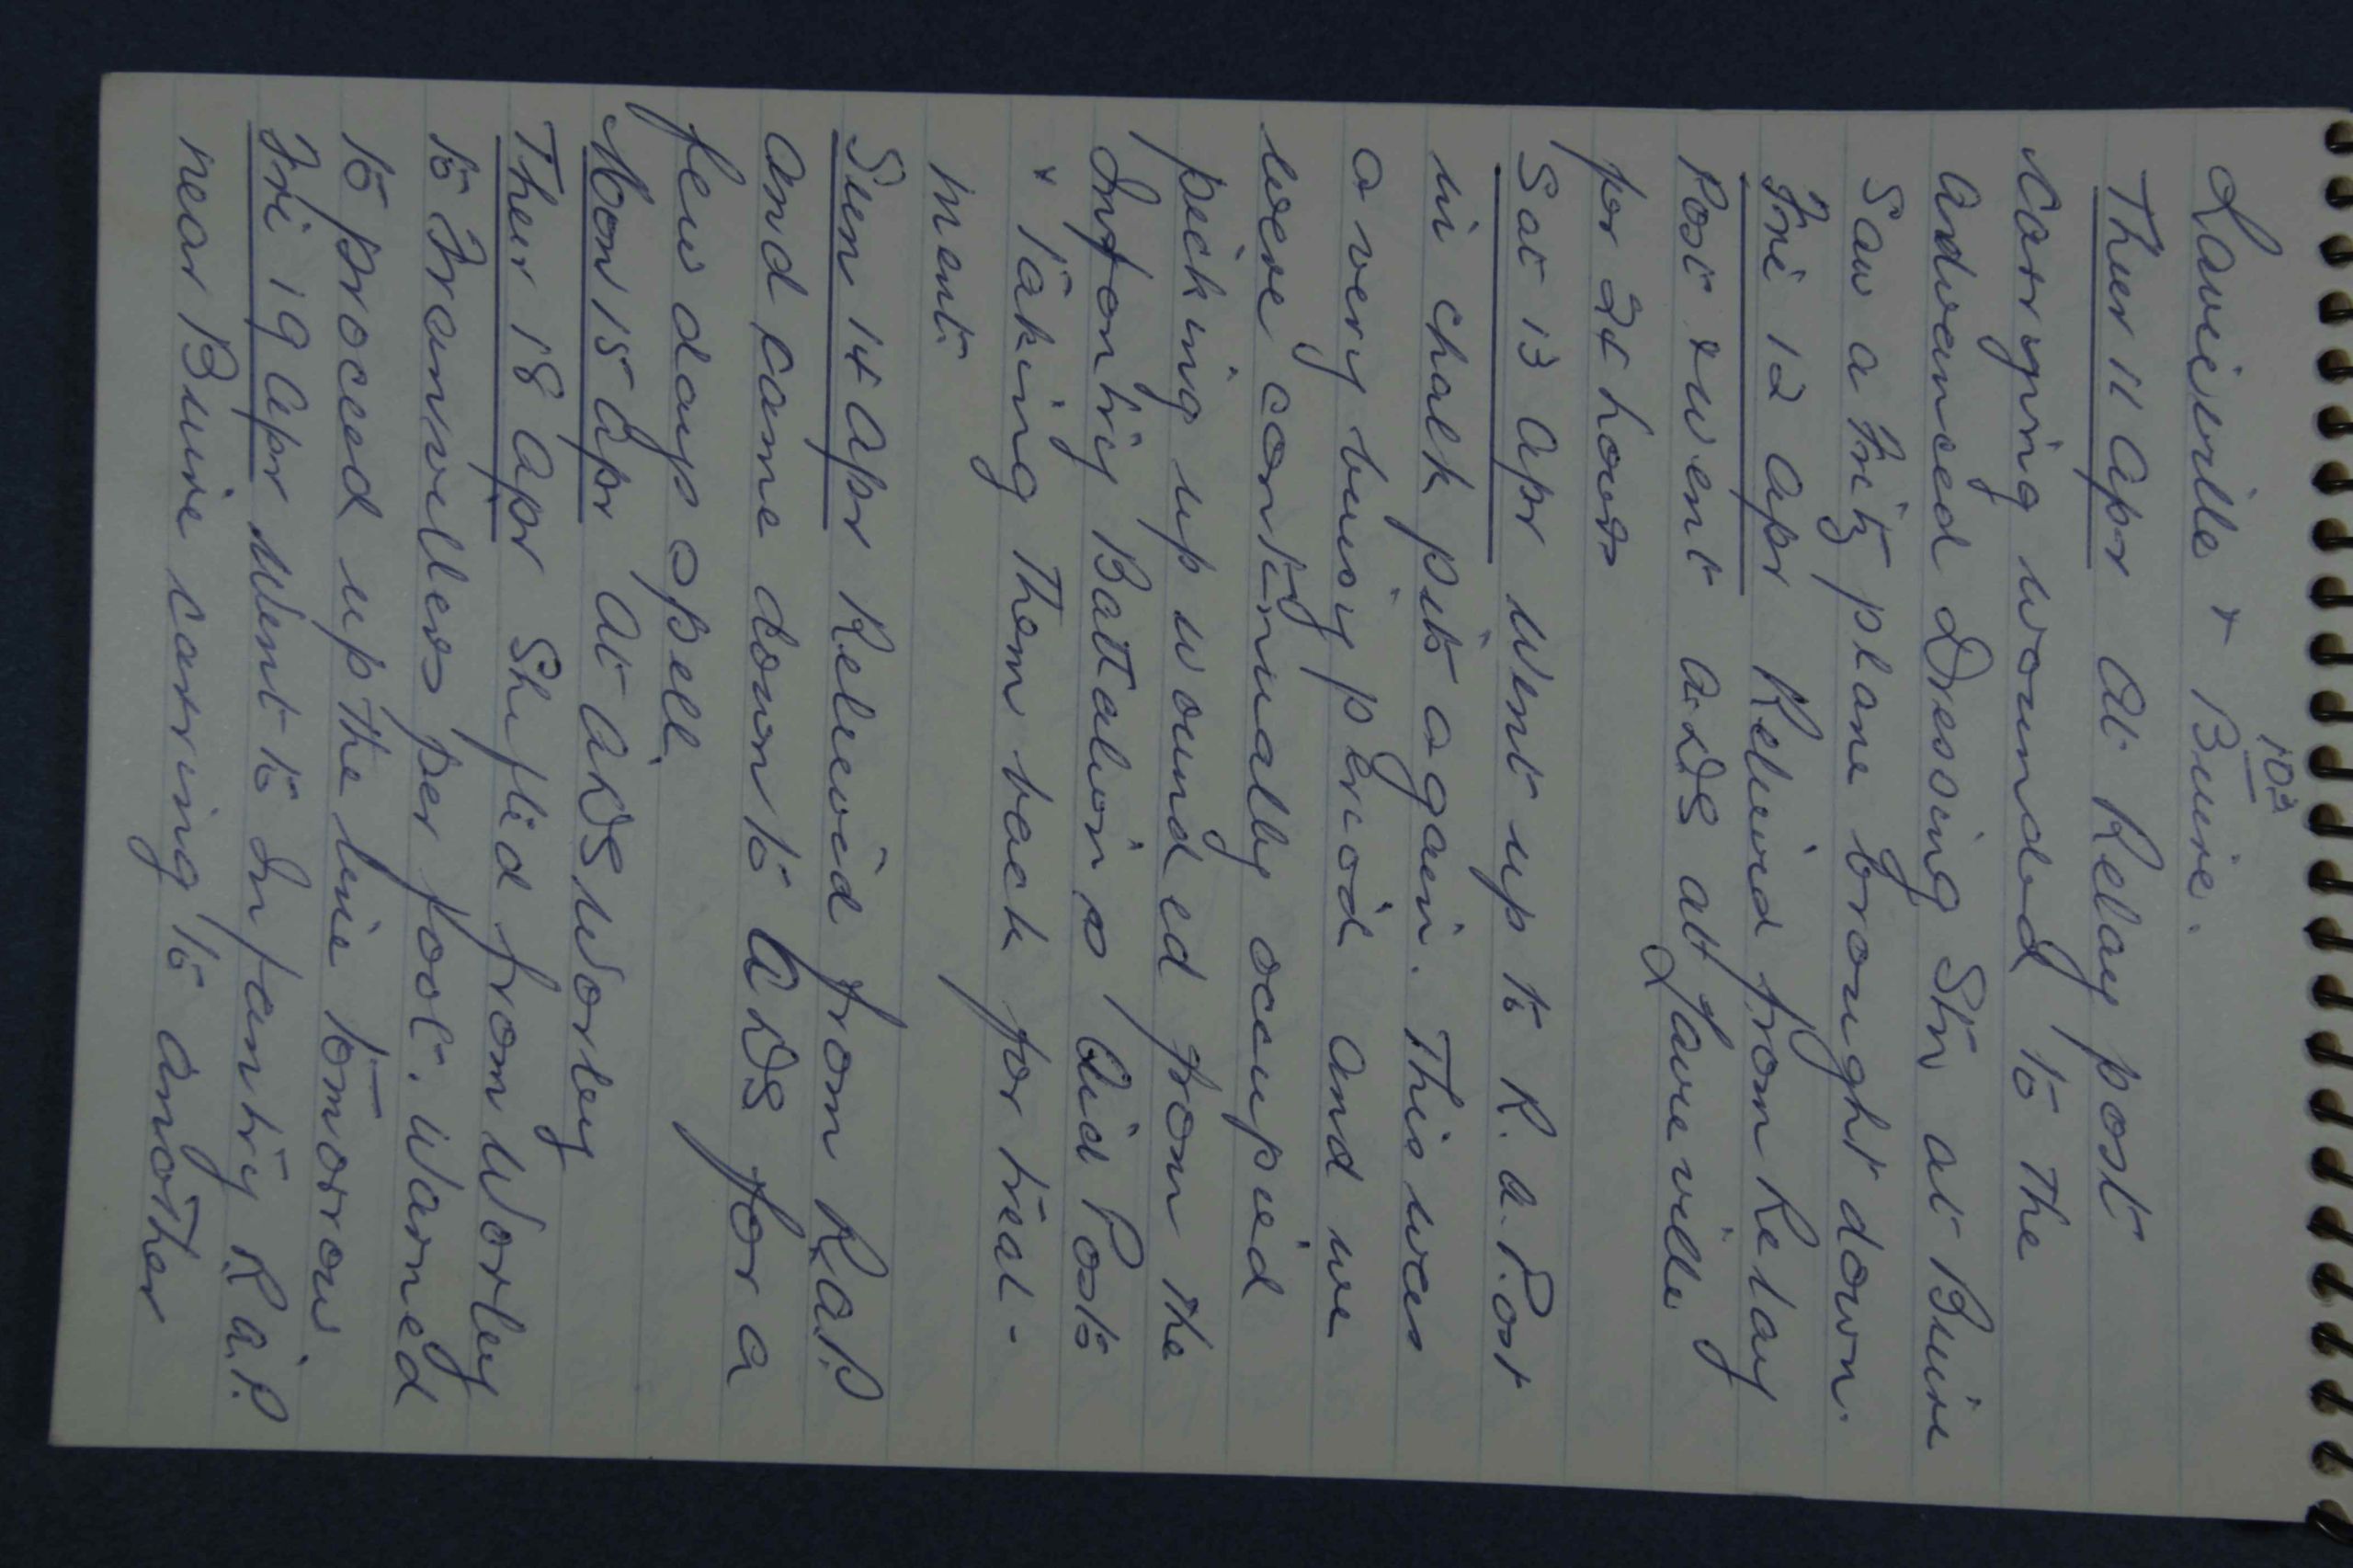 103
Lavieville & Buire.
Thur 11 Apr At Relay post
carrying wounded to the
Advanced Dressing Stn at Buire
Saw a Fritz plane brought down.
Fri 12 Apr Relievd from Relay
Post & went ADS at Laveville
for 24 hours
Sat 13 Apr Went up to R.A.Post
in chalk pits again. This was
a very busy period and we
were continually occupied
picking up wounded from the
Infantry Battalions Aid Posts
& taking them back for treat-
ment.
Sun 14 Apr Relieved from R.A.P
and came down to ADS for a
few days spell.
Mon 15 Apr At ADS Worley
Thur 18 Apr Shifted from Worley
to Franvillers per foot. Warned
to proceed up the line tomorrow.
Fri 19 Apr Went to Infantry R.A.P.
near Buire carring to another